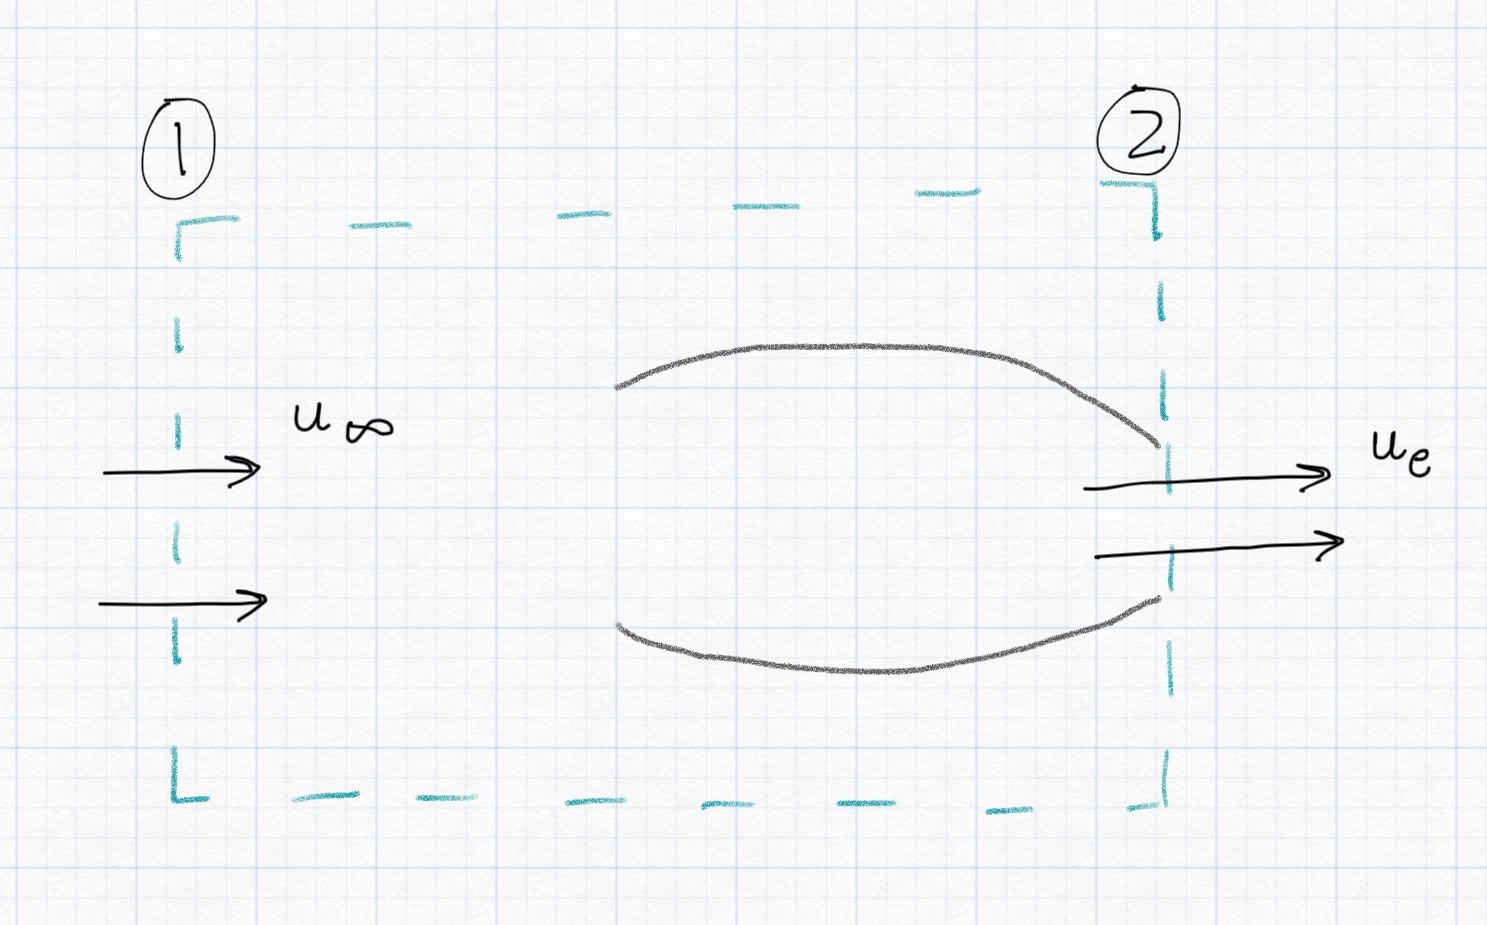 1
2
u∞
ue